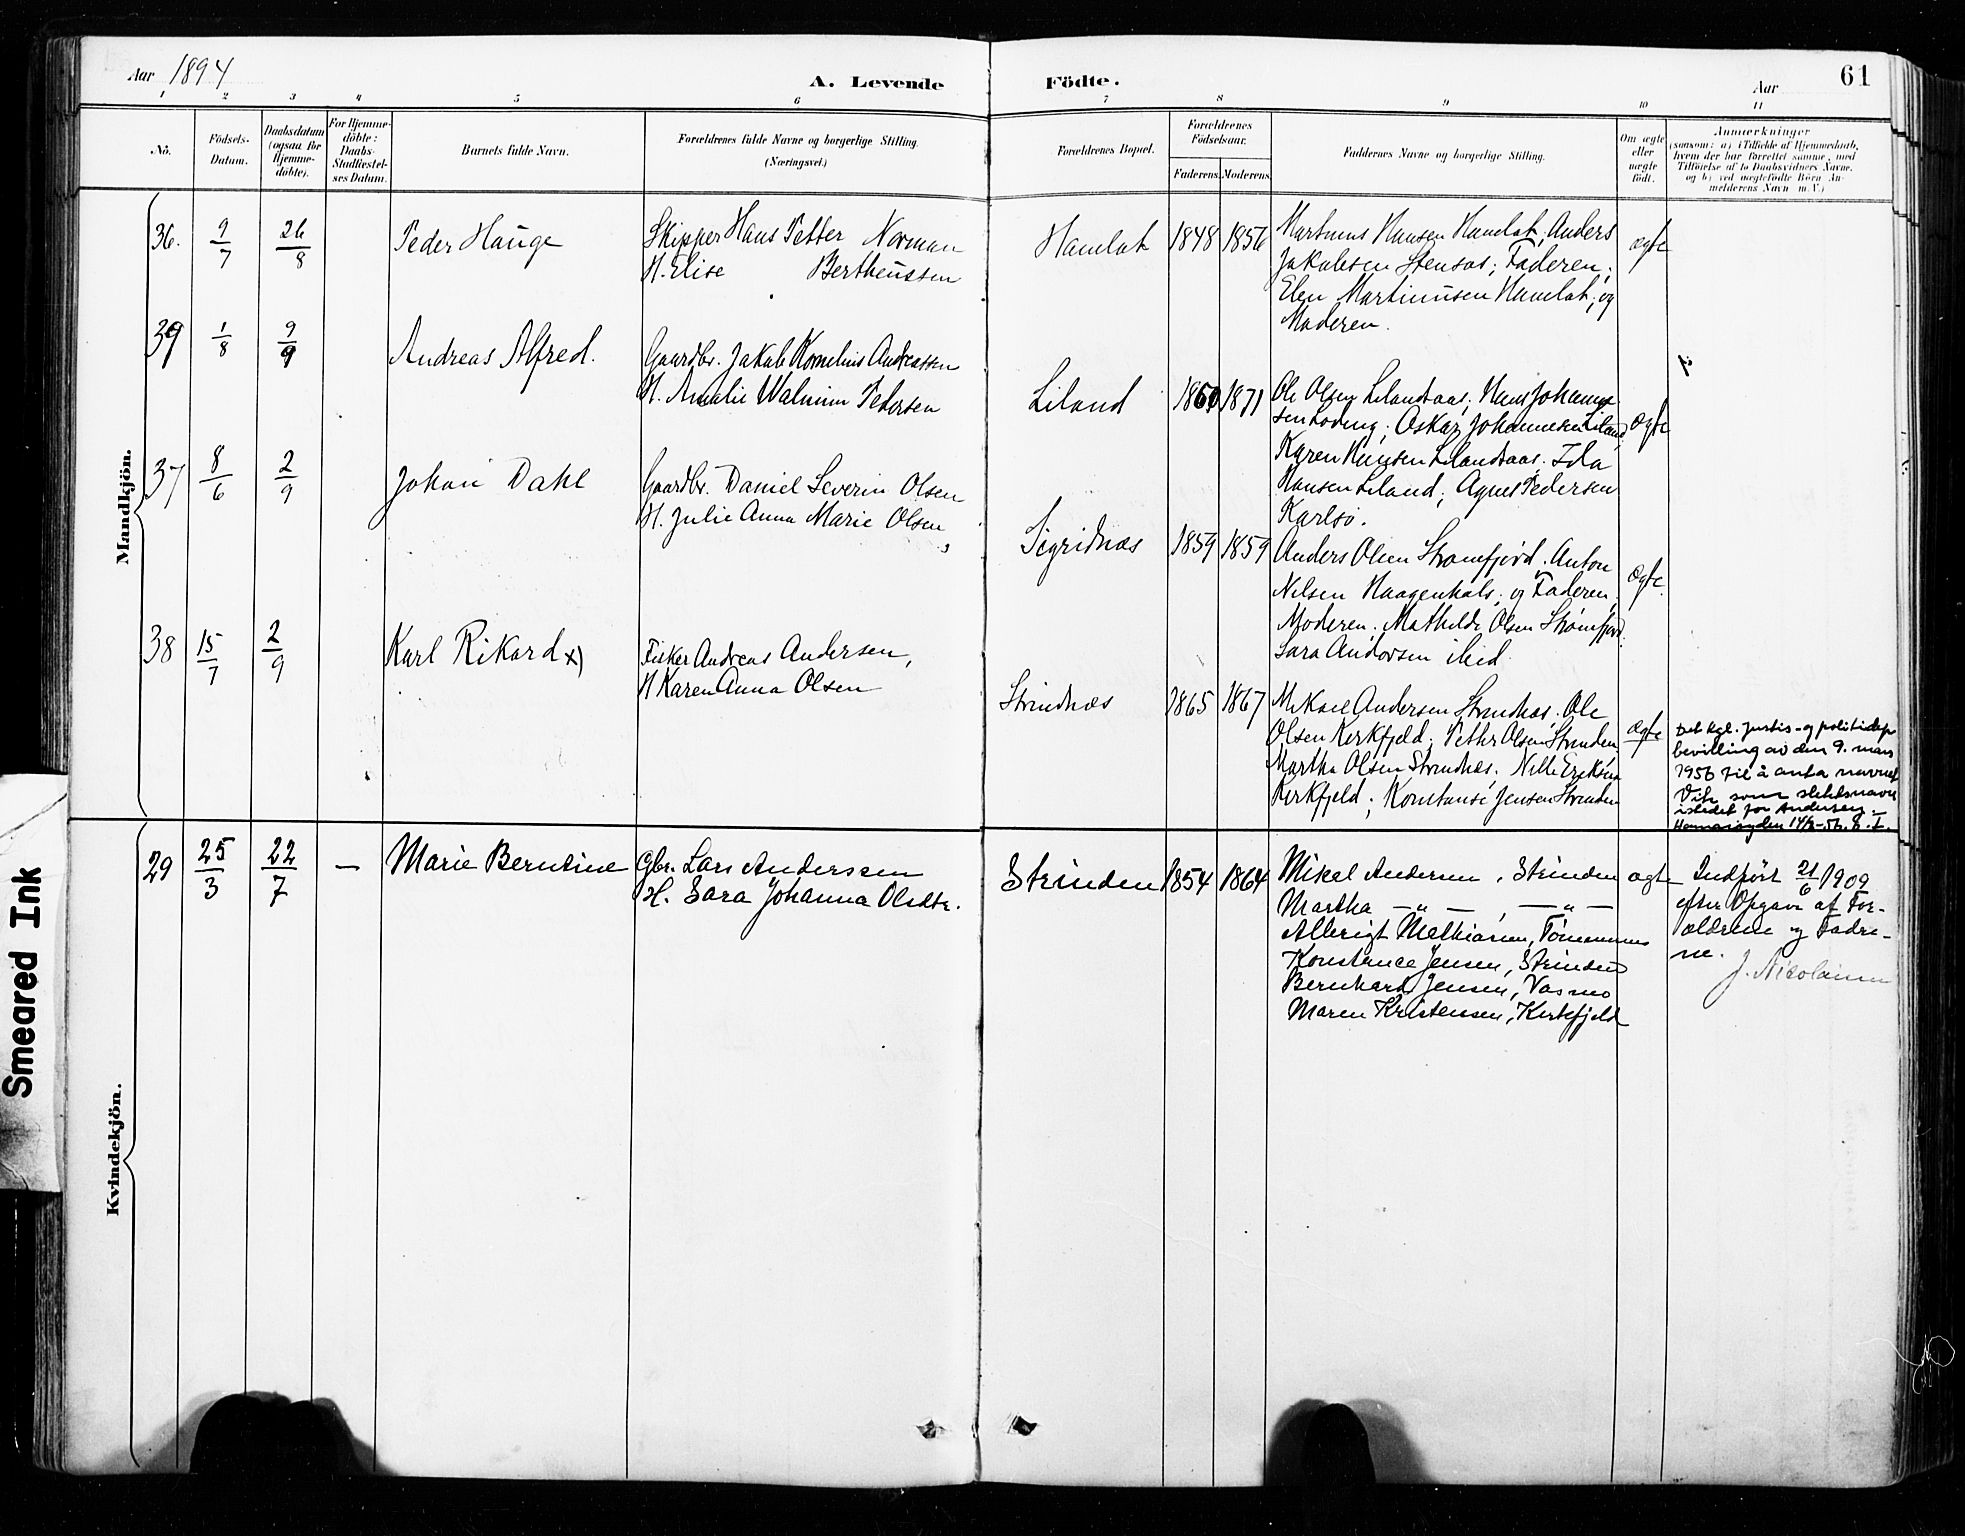 Aar 1894
A. Levende
Födte.
Aar
61
1 2 3 4 5 6 7 8 9 10 11
No.
Födsels-
Datum.
Daabsdatum
(ogsaa for
Hjemme-
döbte).
For Hjemme-
döbte:
Daabs-
Stadfæstel-
ses Datum.
Barnets fulde Navn.
Forældrenes fulde Navne og borgerlige Stilling.
(Næringsvei.)
Forældrenes Bopæl.
Forældrenes
Födselsaar.
Faderens. Moderens.
Faddernes Navne og borgerlige Stilling.
Om ægte
eller
uægte
födt.
Anmærkninger
(saasom: a) i Tilfælde af Hjemmedaab,
hvem der har forrettet samme, med
Tilföielse af to Daabsvidners Navne.
og b) ved uægtefödte Börn An-
melderens Navn m. V.)
Mandkjön.
36. 9/7 26/8 Peder Hauge
Skipper Hans Petter Norman
H. Elise Bertheussen
Hamlot 1848 1856
Martinus Hansen Hamlot; Anders
Jakobsen Stensos; Faderen;
Elen Martinusen Hamlot; og
Moderen.
ægte
39 1/8 9/9 Andreas Alfred.
Gaardbr. Jakob Kornelius Andreassen
H. Amalie Pedersen
Liland 1860 1871
Ole Olsen Lilandsaas; Hans Johannes-
sen ; Oskar Johannesen Liland;
Karen Hansen Lilandsaas. Ida
Hansen Liland; Agnes Pedersen
Karlsö.
ægte
37 8/6 2/9 Johan Dahl
Gaardbr. Daniel Severin Olsen
H. Julie Anna Marie Olsen
Sigridnæs 1859 1859
Anders Olsen Strömfjord. Anton
Nilsen Haagenhals; og Faderen.
Moderen; Mathilde Olsen Strömfjord.
Sara Andorsen ibid.
ægte.
38 15/7 2/9 Karl Rikard x)
Fisker Andreas Andersen,
H Karen Anna Olsen
Strindnæs 1865 1867
Mikael Andersen Strindnæs; Ole
Olsen Kirkfjeld; Petter Olsen Strinden
Martha Olsen Strindnæs; Nille Eriksen
Kirkfjeld; Konstanse Jensen Strinden
ægte
Det kgl. Justis- og politidep
bevilling av den 9. mars
1956 til å anta navnet
Vik som slektsnavn
istedet for Andersen.-
Kvindekjön.
29 25/3 22/7 — Marie Berntine
Gbr. Lars Anderssen
H. Sara Johanna Olsdtr.
Strinden 1854 1864
Mikal Andersen, Strinden
Martha —"—, —"—
Albrigt Mathiasen,
Konstance Jensen, Strinden
Bernhard Jensen, Vasmo
Maren Kristensen, Kirkfjeld
ægte
Indført 21/6 1909
efter Opgave af For-
ældrene og Fadre-
ne.
J. Nicolaisen
Smeared Ink